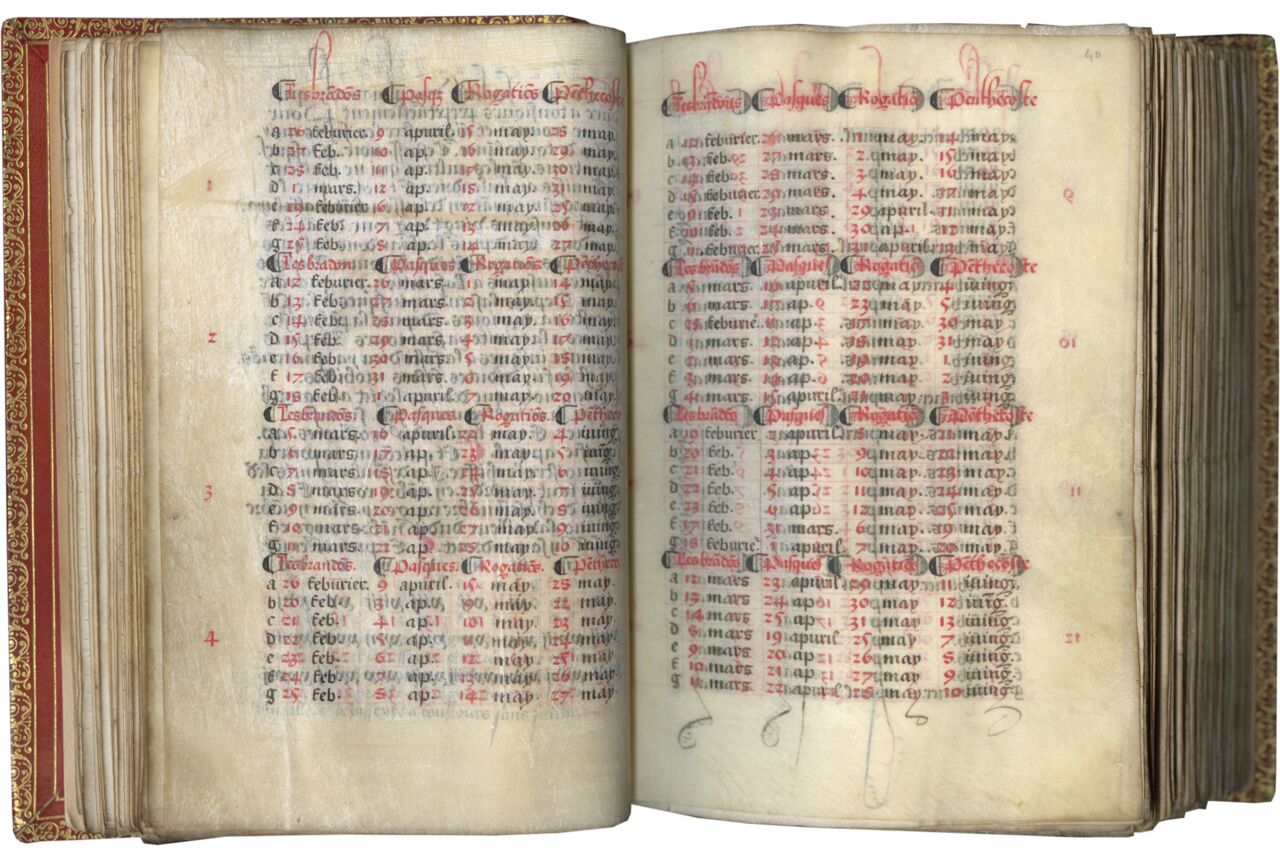 Lesbrãdõs Pasqz Rogatiõs Pẽthecoste
a 26 feburier. 9 apuril. 15 may. 28 may.
b 27 feb. 10 ap. 16 may. 29 may.
c 28 feb. 11 ap. 17 may. 30 may.
1
d 1 mars. 12 ap. 18 may. 31 may.
e feburier ap. 12 may. 25 may.
f 24 feb. 7 ap. 13 may 26 may.
g 25 feb. 8 ap. 14 may 27 may.
Lesbrãdon Pasques Rogatiõs Pẽthecoste
a 12 feburier. 26 mars 1 may. 14 may.
b 13 feb. 27 mars 2 may. 15 may.
c 14 feb. 28 mars. 3 may. 16 may.
2
d 15 feb. 29 mars 4 may. 17 may.
e 16 feb. 30 mars 5 may. 18 may.
f 17 feb. 31 mars. 6 may. 19 may.
g 18 feb. 1 apuril. 7 may. 20 may.
Lesbrandõs. Pasques Rogatiõs. Pẽthecoste
a 5 mars. 16 apuril 22 may. 4 iuing
b 6 mars. 17 ap. 23 may. 5 iuing
c 7 mars 18 ap. 24 may. 6 iuing
3
d 8 mars 19 ap. 25 may. 7 iuing
e 9 mars. 20 ap. 26 may. 8 iuing
f 10 mars 21 ap. 27 may. 9 iuing
g 11 mars 22 ap. 28 may. 10 iuing
Lesbrandos. Pasques. Rogatiõs. Pẽthecoste
a 26 feburier. 9 apuril. 15 may. 28 may.
b 20 feb. 3 ap. 9 may. 22 may.
c 21 feb. 4 ap. 10 may. 23 may.
4
d 22 feb. 5 ap. 11 may. 24 may.
e 23 feb. 6 ap. 12 may. 25 may.
f 24 feb. 7 ap. 13 may. 26 may.
g 25 feb. 8 ap. 14 may 27 may.
40
Lesbrandõs Pasques Rogatiõs Penthecoste
a 12 feburier. 26 mars. 1 may. 14 may
b 13 feb. 27 mars. 2 may. 15 may
c 14 feb. 28 mars. 3 may. 16 may
9
d 15 feburier. 29 mars. 4 may. 17 may
e 9 feb. 23 mars. 29 apuril. 11 may
f 10 feb. 24 mars. 30 ap. 12 may
g 11 feburier. 25 mars. apuril 13 may
Lesbrãdõs Pasques Rogatiõs Pẽthecoste
a 5 mars 16 apuril 22 may. 4 iuing
b 6 mars. 17 ap. 23 may. 5 iuing
c 28 feburiẽ. 11 ap. 17 may. 30 may
10
d 1 mars. 12 ap. 18 may. 31 may
e 2 mars. 13 ap. 19 may. 1 iuing
f 3 mars. 14 ap. 20 may. 2 iuing
g 4 mars. 15 apuril. 21 may. 3 iuing
Lesbrãdõs Pasques Rogatiõs Pẽthecoste
a 19 feburier 2 apuril. 8 may. 21 may
b 20 feb. 3 ap. 9 may. 22 may
c 21 feb. 4 ap. 10 may. 23 may
11
d 22 feb. 5 ap. 11 may. 24 may
e 23 feb. 6 ap. 12 may. 25 may
f 17 feb. 31 mars. 6 may. 19 may
g 18 feburiẽ. 1 apuril 7 may. 20 may
Lesbrãdõs Pasques Rogatiõs Pẽthecoste
a 12 mars 23 apuril 29 may 11 iuing
b 13 mars 24 ap 30 may 12 iuing
c 14 mars 25 ap 31 may 13 iuing
12
d 8 mars 19 apuril 25 may 7 iuing
e 9 mars 20 ap 26 may 8 iuing
f 10 mars 21 ap 27 may 9 iuing
g 11 mars 22 apuril 28 may 10 iuing